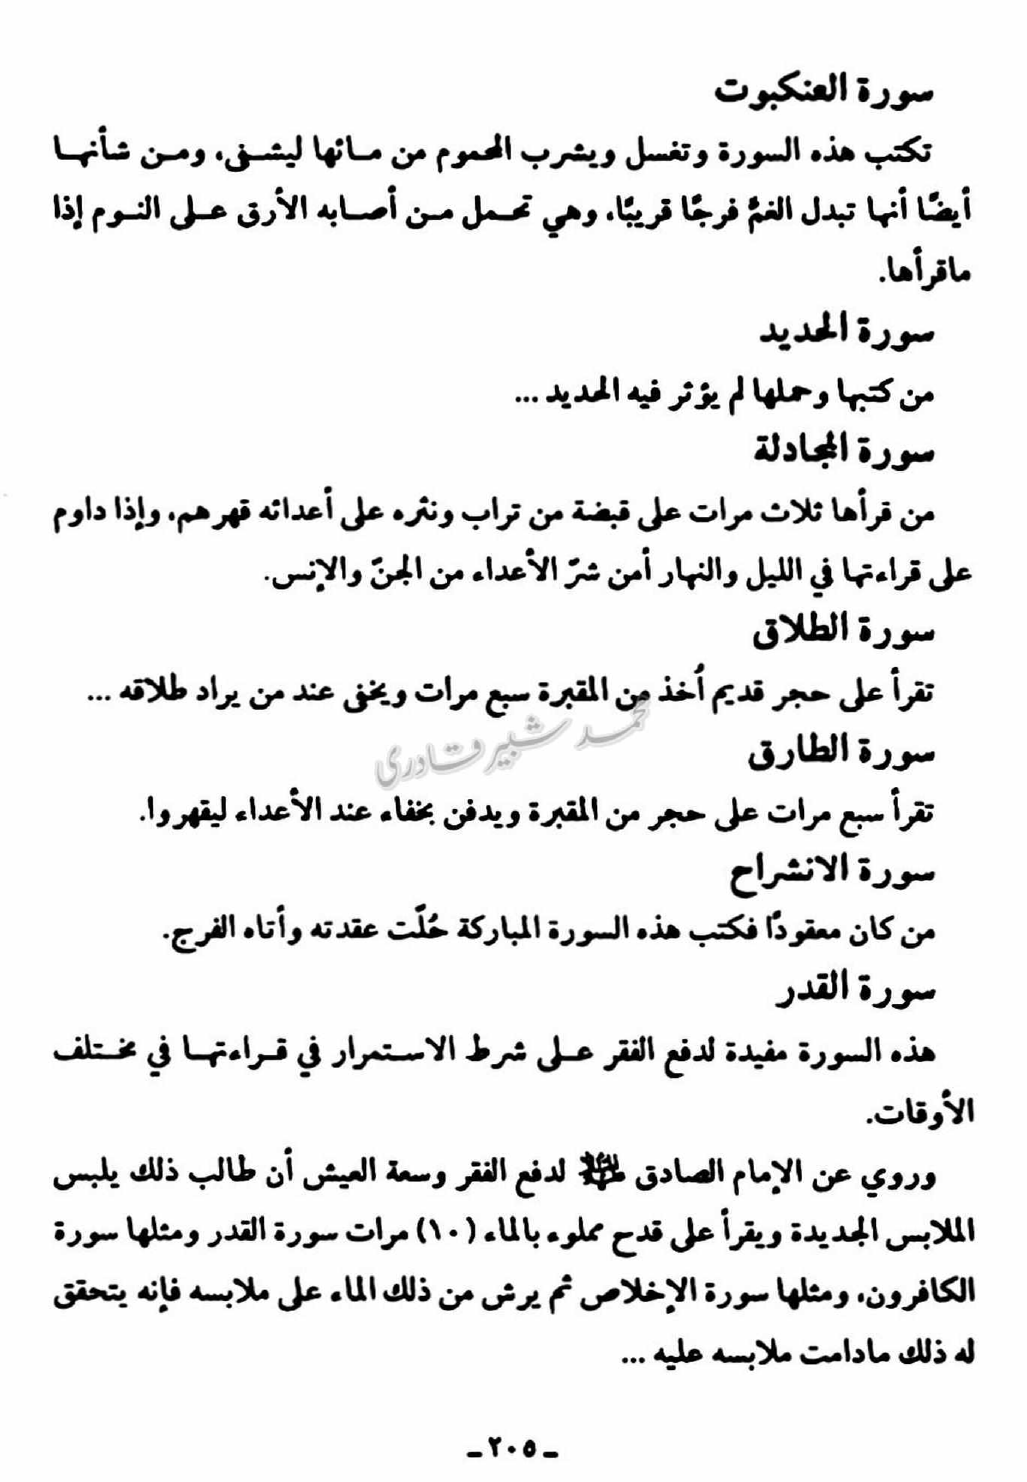 سورة العنكبوت
تكتب هذه السورة وتغسل ويشرب المحموم من مـائها ليشـفى، ومـن شأنهـا
أيضًا أنها تبدل الغمَّ فرجًا قريبًا، وهي تحمـل مـن أصـابه الأرق عـلى النـوم إذا
ماقرأها.
سورة الحديد
من كتبها وحملها لم يؤثر فيه الحديد ...
سورة المجادلة
من قرأها ثلاث مرات على قبضة من تراب ونثره على أعدائه قهرهم، وإذا داوم
على قراءتها في الليل والنهار أمن شرّ الأعداء من الجنّ والإنس.
سورة الطلاق
تقرأ على حجر قديم أُخذ من المقبرة سبع مرات ويخفى عند من يراد طلاقه ...
محمد شبير قادری
سورة الطارق
تقرأ سبع مرات على حجر من المقبرة ويدفن بخفاء عند الأعداء ليقهروا.
سورة الانشراح
من كان معقودًا فكتب هذه السورة المباركة حُلّت عقدته وأتاه الفرج.
سورة القدر
هذه السورة مفيدة لدفع الفقر عـلى شرط الاسـتمرار في قـراءتهـا في مخـتلف
الأوقات.
وروي عن الإمام الصادق لدفع الفقر وسعة العيش أن طالب ذلك يلبس
الملابس الجديدة ويقرأ على قدح مملوء بالماء (١٠) مرات سورة القدر ومثلها سورة
الكافرون، ومثلها سورة الإخلاص ثم يرش من ذلك الماء على ملابسه فإنه يتحقق
له ذلك مادامت ملابسه عليه ...
ـ ٢٠٥ ـ